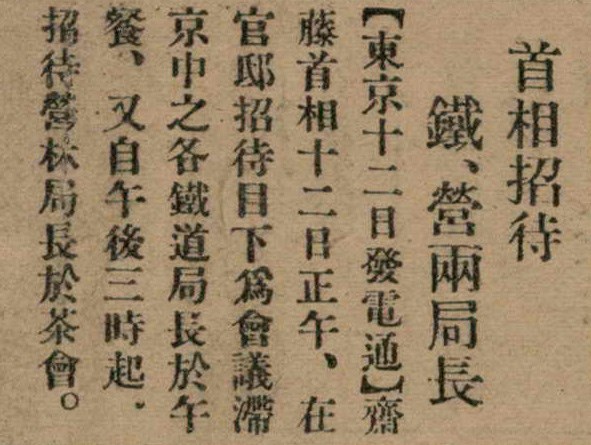 首相招待
鐵、營兩局長
【東京十二日發電通】齋
藤首相十二日正午、在
官邸招待目下爲會議滯
京中之各鐵道局長於午
餐、又自午後三時起.
招待營林局長於茶會。